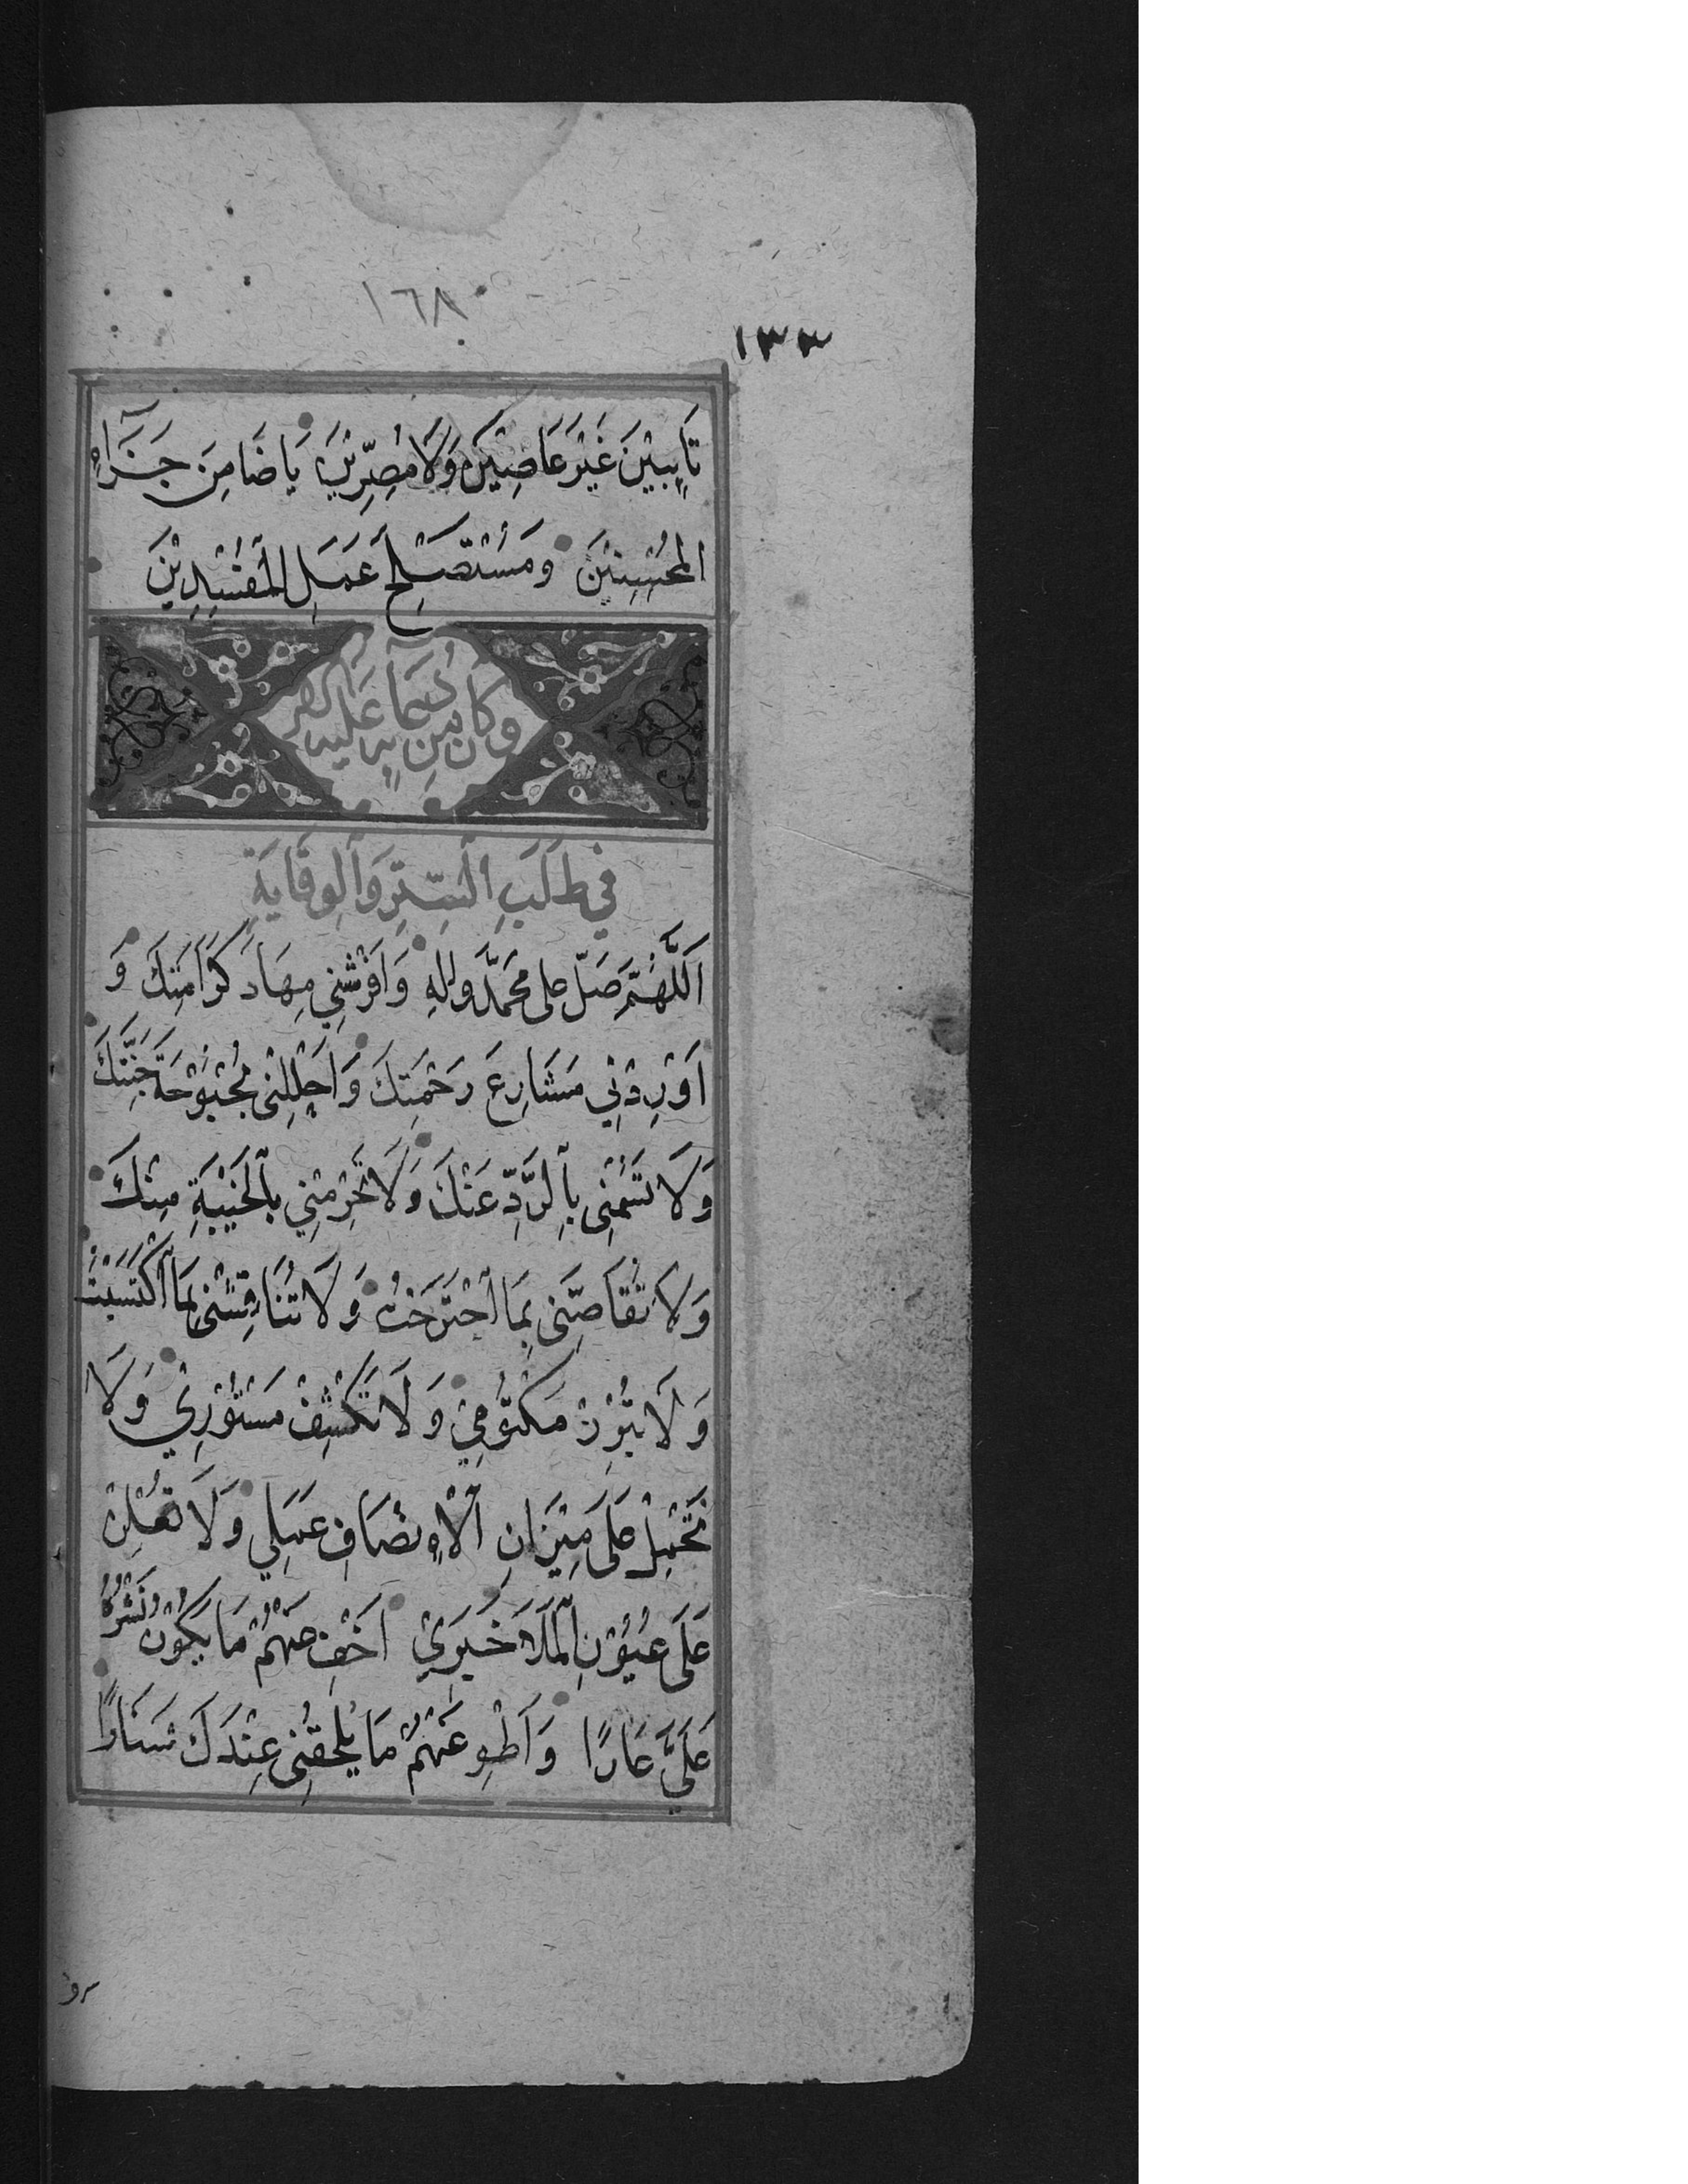 ١٦٨
١٣٣
تَاۤيِٕبيْنَ غَيْرَ عَاصِيْنَ وَلَا مُصِرِّيْنَ يَا ضَامِنَ جَزَاۤءِ
المُحْسِنِيْنَ وَمُسْتَصْلِحَ عَمَلِ المُفْسِدِيْنَ
وكان من دعاۤئه عليه السلام
فِي طَلَبِ السِّتْرِ وَالْوِقَايَةِ
اَللَّهُمَّ صَلِّ عَلى مُحَمَّدٍ وَاٰلِهِ وَافْرُشْنِي مِهَادَ كَرَامَتِكَ وَ
اَوْرِدْنِي مَشَارِعَ رَحْمَتِكَ وَاَحْلِلْنِى بُحْبُوْحَةَ جَنَّتِكَ
وَلَا تَسُمْنِى بِالرَّدِّ عَنْكَ وَلَا تَحْرِمْنِي بِالْخَيْبَةِ مِنْكَ
وَلَا تُقَاصِّنِى بِمَا اجْتَرَحْتُ وَلَا تُنَاقِشْنِى بِمَا اكْتَسَبْتُ
وَلَا تُبْرِزْ مَكْتُوْمِيْ وَلَا تَكْشِفْ مَسْتُوْرِيْ وَلَا
تَحْمِلْ عَلَى مِيْزَانِ الْاِنْصَافِ عَمَلِي وَلَا تُعْلِنْ
عَلَى عُيُوْنِ الْمَلَاَ خَبَرِيْ اَخْفِ عَنْهُمْ مَا يَكُوْنُ نَشْرُهُ
عَلَيَّ عَارًا وَاَطْوِ عَنْهُمْ مَا يُلْحِقُنِى عِنْدَكَ شَنَارًا